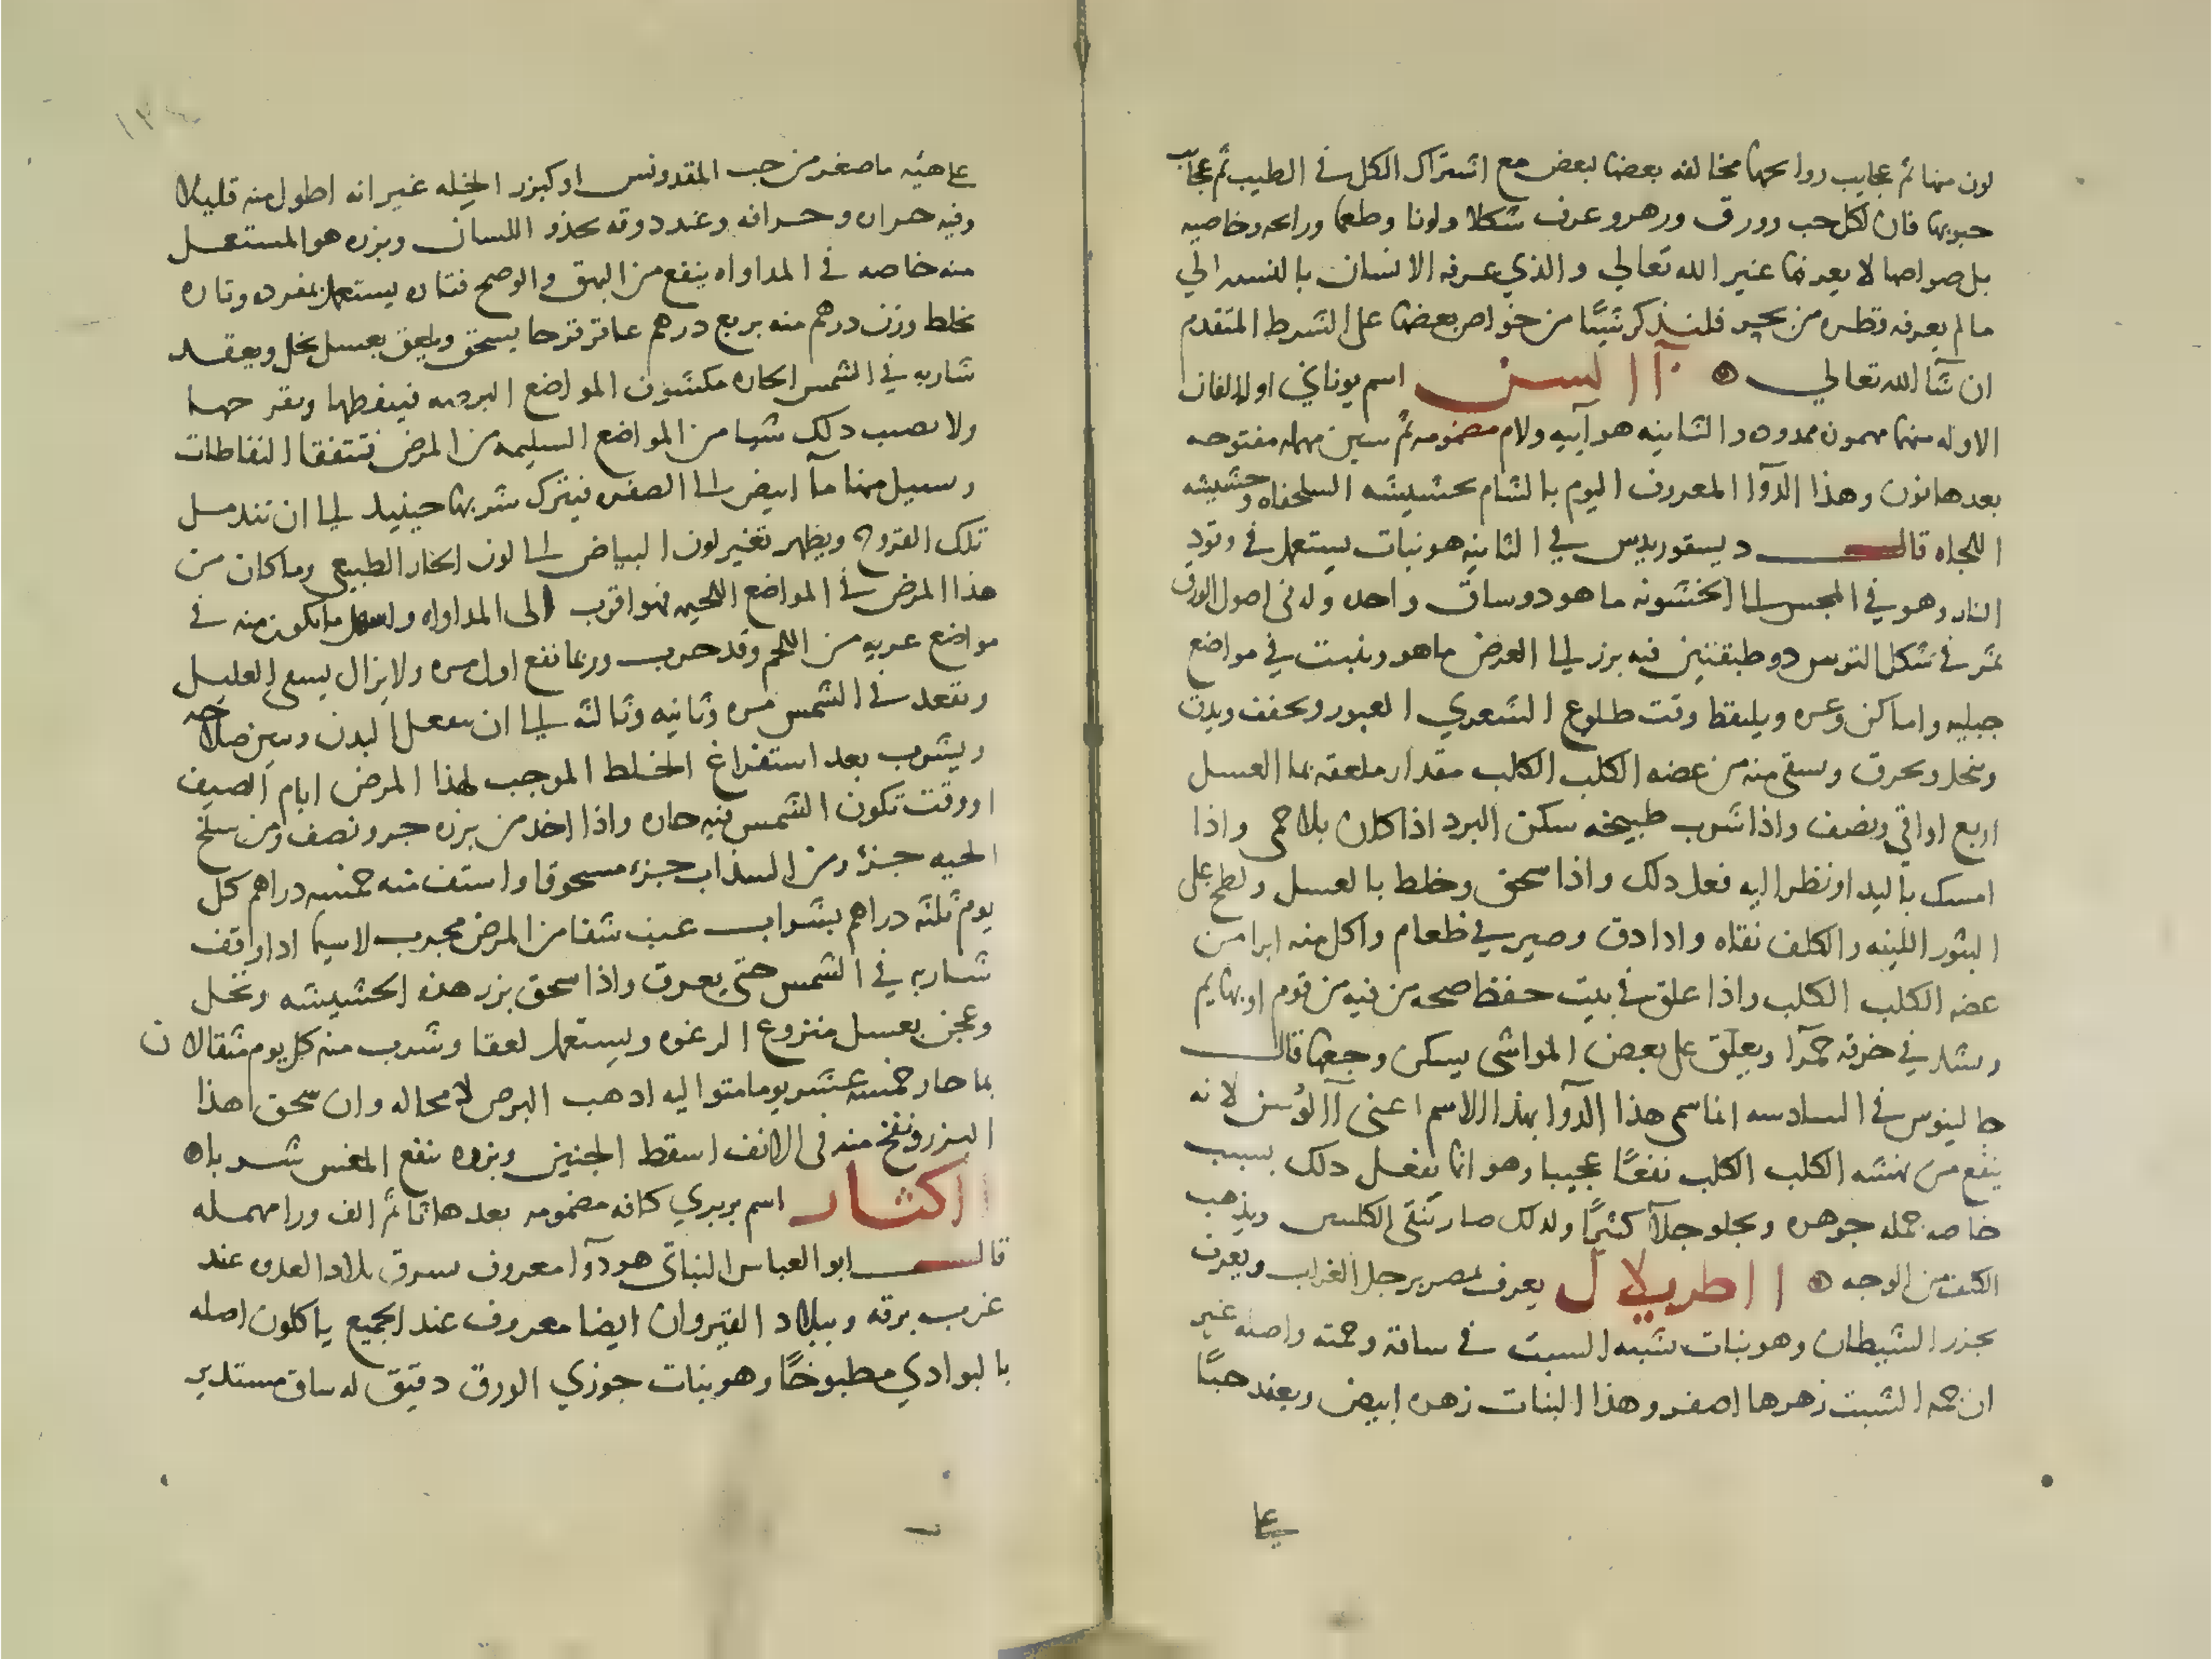 لون منها ثم عجايب روايحها مخالفه بعضها لبعض مع اشتراك الكل في الطيب ثم عجايب
حبوبها فان لكل حب وورق وزهر وعرف شكلا ولونا وطعما ورايحه وخاصيه
بل خواصها لا يعرفها غير الله تعالي والذي عرفه الانسان بالنسبه الي
ما لم يعرفه قطره من بحر فلنذكر شيئا من خواص بعضها علي الشرط المتقدم
ان شآ الله تعالي آالسن اسم يوناني اوله الفان
الاوله منها مهموزه ممدوده والثانيه هوآييه ولام مضمومه ثم سين مهمله مفتوحه
بعدها نون وهذا الدوآ المعروف اليوم بالشام بحشيشه السلحفاه وحشيشه
اللجاه قال ديسقوريدس في الثانيه هو نبات يستعمل في وقود
النار وهو في المجس الي الخشونه ما هو ذو ساق واحده وله في اصول الورق
ثمر في شكل الترس ذو طبقتين فيه بزر الي العرض ما هو وينبت في مواضع
جبليه واماكن وعره ويلتقط وقت طلوع الشعري العبور ويجفف ويدق
وينخل ويحرق ويسقي منه من عضه الكلب الكلب مقدار ملعقه بما العسل
اربع اواقي ونصف واذا شرب طبيخه سكن البرد اذا كان بلا حمي واذا
امسك باليد او نظر اليه فعل ذلك واذا سحق وخلط بالعسل ولطخ علي
البثور اللبنيه والكلف نقاه واذا دق وصير في طعام واكل منه ابرا من
عضه الكلب الكلب واذا علق في بيت حفظ صحه من فيه من قوم او بهايم
وشد في خرقه حمرآ ويعلق علي بعض المواشي يسكن وجعها قال
جالينوس في السادسه انما سمي هذا الدوآ بهذا الاسم اعني آالوسن لانه
ينفع من نهشه الكلب الكلب نفعًا عجيبا وهو انما يفعل ذلك بسبب
خاصه جمله جوهره ويجلو جلآ كثيرًا ولذلك صار ينقي الكلف ويذهب
الكلف من الوجه ااطريلال يعرف بمصر برجل الغراب ويعرف
بجزر الشيطان وهو نبات شبيه الشبت في ساقه وجمته واصله غير
ان جمه الشبت زهرها اصفر وهذا النبات زهره ابيض ويعقد حبًّا
علي
علي هيئه ما صغر من حب المقدونس او كبزر الخله غير انه اطول منه قليلا
وفيه حراره وحرافه وعند ذوقه يحذو اللسان وبزره هو المستعمل
منه خاصه في المداواه ينفع من البهق والوضح فتاره يستعمل بمفرده وتاره
يخلط وزن درهم منه بربع درهم عاقرقرحا يسحق ويلعق بعسل نحل ويقعد
شاربه في الشمس الحاره مكشوف المواضع البرصه فينفطها ويقرحها
ولا يصيب ذلك شيا من المواضع السليمه من المرض فتتفقا النفاطات
ويسيل منها مآ ابيض الي الصفره فيترك شربها حينيذ الي ان تندمل
تلك القروح ويظهر تغير لون البياض الي لون الجلد الطبيعي وما كان من
هذا المرض في المواضع اللحيمه فهو اقرب الي المداواه واسهل ما يكون منه في
مواضع عريه من اللحم وقد جرب وربما نفع اول مره ولا يزال يسعي العليل
ويقعد في الشمس مره وثانيه وثالثه الي ان ينفعل البدن ويبين صلاحه
ويشرب بعد استفراغ الخلط الموجب لهذا المرض ايام الصيف
او وقت تكون الشمس فيه حاره واذا اخذ من بزره جزو ونصف ومن سلخ
الحيه جزء ومن السذاب جزء مسحوقا واستف منه خمسه دراهم كل
يوم ثلثه دراهم بشراب عنب شفا من المرض مجرب لا سيما اذا واقف
شاربه في الشمس حتي يعرق واذا سحق بزر هذه الحشيشه ونخل
وعجن بعسل منزوع الرغوه ويستعمل لعقا وشرب منه كل يوم مثقالان
بما حار خمسه عشر يوما متواليه اذهب البرص لا محاله وان سحق هذا
البزر ونفخ منه في الانف اسقط الجنين وبزره ينفع المغس شربا
ااكثار اسم بربري كافه مضمومه بعدها ثا ثم الف ورا مهمله
قال ابو العباس النباتي هو دوآ معروف بشرق بلاد العدوه عند
غرب برقه وببلاد القيروان ايضا معروف عند الجميع ياكلون اصله
بالبوادي مطبوخًا وهو نبات جوزي الورق دقيق له ساق مستدير